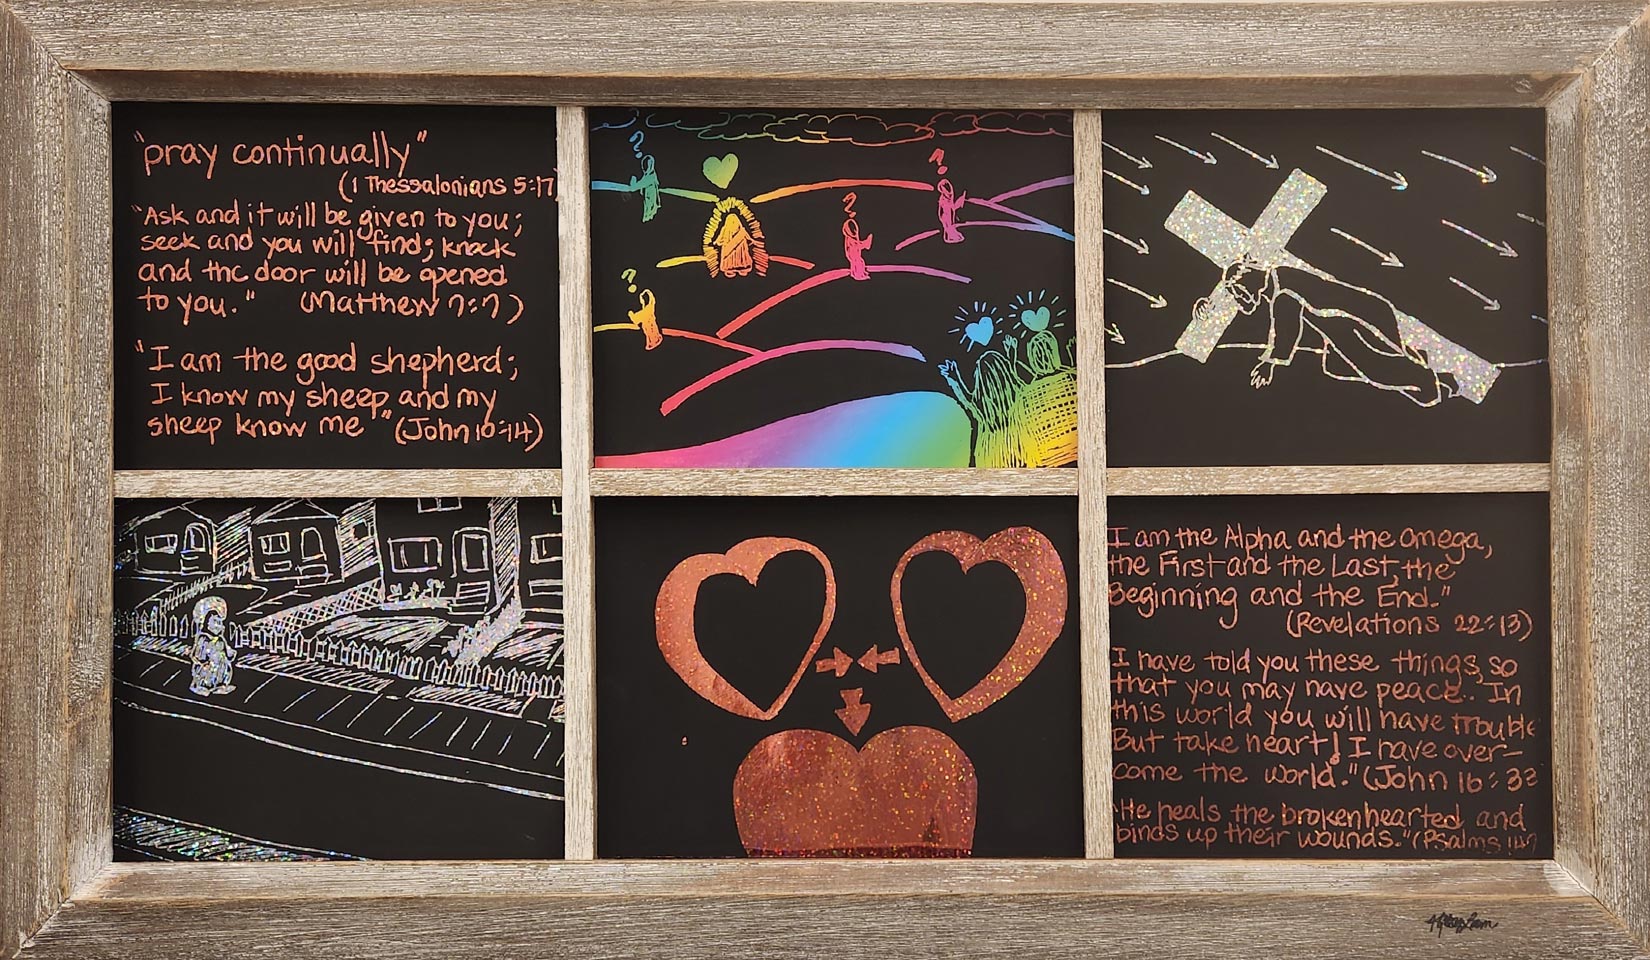 "pray continually"
(1 Thessalonians 5:17
"Ask and it will be given to you;
seek and you will find; knock
and the door will be opened
to you." (Matthew 7:7)
"I am the good shepherd;
I know my sheep and my
sheep know me" (John 10:14)
?
?
?
?
I am the Alpha and the Omega,
the First and the Last, the
Beginning and the End."
(Revelations 22:13)
I have told you these things, so
that you may have peace. In
this world you will have trouble
But take heart! I have over-
come the world." (John 16:33
"He heals the brokenhearted and
binds up their wounds." (Psalms